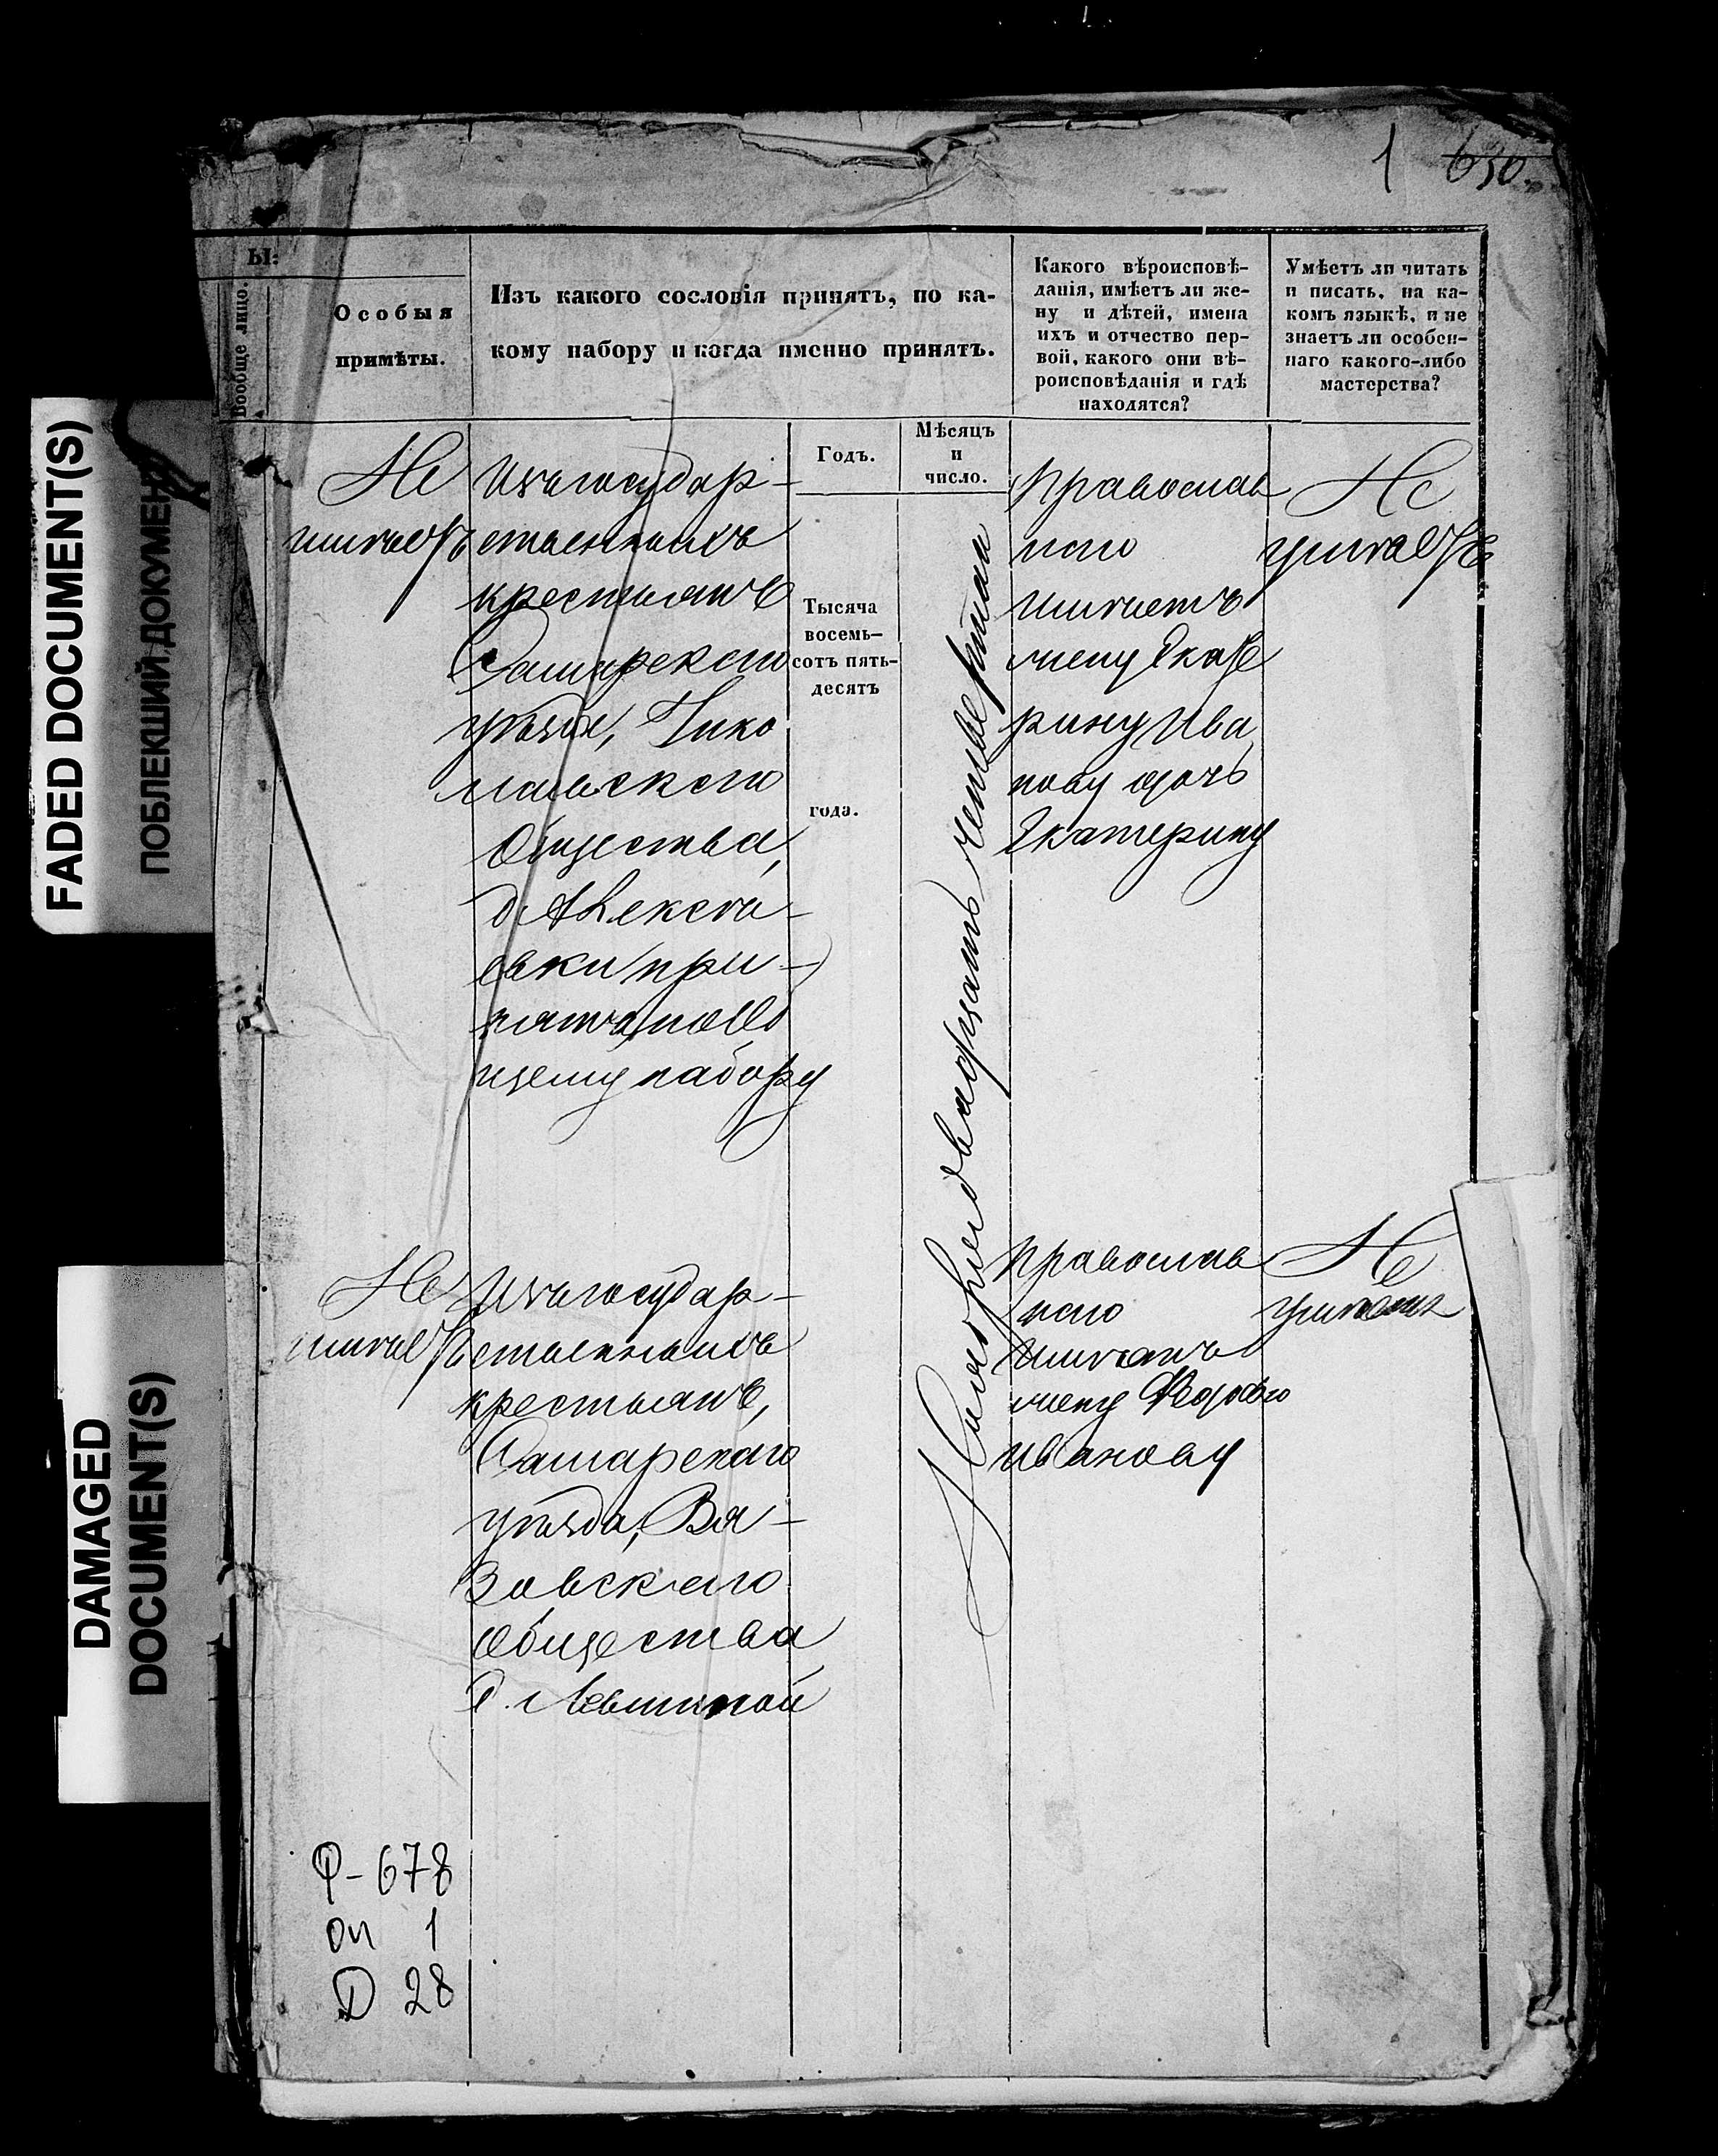 1 630.
FADED DOCUMENT(S)
ПОБЛЕКШИЙ ДОКУМЕН
DAMAGED
DOCUMENT(S)
Ы:
Вообще лицо.
Особыя
примѣты.
Изъ какого сословія принятъ, по ка-
кому набору и когда именно принятъ.
Какого вѣроисповѣ-
данія, имѣетъ ли же-
ну и дѣтей, имена
ихъ и отчество пер-
вой, какого они вѣ-
роисповѣданія и гдѣ
находятся?
Умѣетъ ли читать
и писать, на ка-
комъ языкѣ, и не
знаетъ ли особен-
наго какого-либо
мастерства?
Годъ.
Мѣсяцъ
и
число.
Тысяча
восемь-
сотъ пять-
десятъ
года.
Не
имѣетъ
Изъ государ-
ственныхъ
крестьянъ
Самарскаго
уѣзда, Нико
лаевскаго
Общества,
д. Алексѣ-
евки при-
нятъ
щему набору
двадцать четвертаго
Православ
наго
имѣетъ
жену Екате
рину Ива
нову дочь
Екатерину
Не
умѣетъ
Не
имѣетъ
Изъ государ-
ственныхъ
крестьянъ,
Самарскаго
уѣзда, Вя-
зовскаго
Общества
Православ
наго
имѣетъ
жену
Иванову
Не
умѣетъ
Ф-678
оп 1
D 28